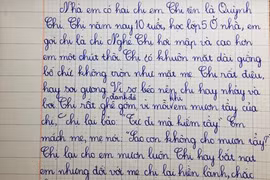 Nhà em có hai chị em. Chị tên là Quỳnh
Chi. Chị năm nay 10 tuổi, học lớp 5. Ở nhà, em
gọi chị là chị Nghé. Chị hơi mập và cao hơn
em một chút thôi. Chị có khuôn mặt dài giống
bố chứ không tròn như mặt mẹ. Chị rất điệu,
hay soi gương. Vì sơ béo nên chị hay nhảy và
bơi. Chị rất ghê gớm, vì mỗi khi em mượn tẩy của
đanh đá
chị, chị lại bảo "Tự đi mà kiếm tẩy". Em
mách mẹ, mẹ nói: "Sao con không cho mượn tẩy?
Chị lại cho em mượn luôn. Chị hay bắt nạt
em nhưng đối với mẹ chị lại hiền lành, chắc